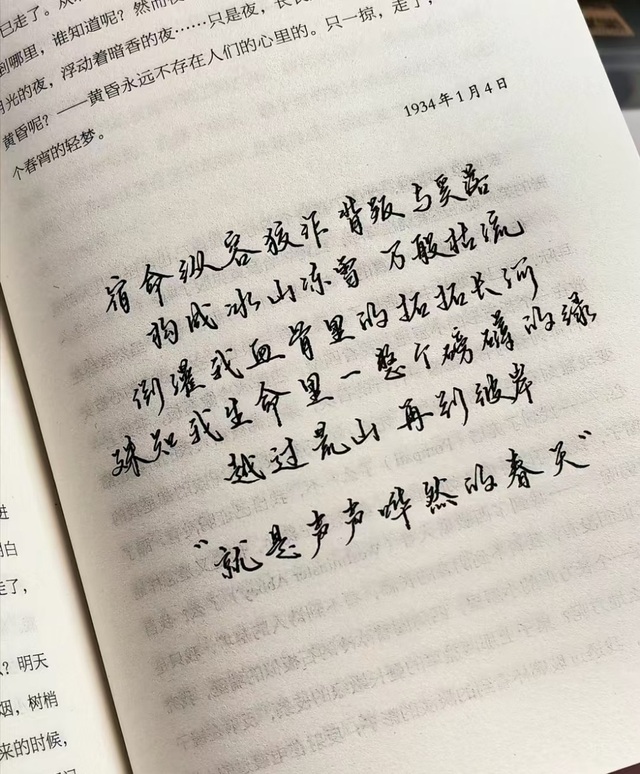 已走了。
到哪里，谁知道呢？然而
月光的夜，浮动着暗香的夜……只是夜，长长
黄昏呢？——黄昏永远不存在人们的心里的。只一掠，走了，
个春宵的轻梦。
1934年1月4日
宿命纵容狡诈 背叛与奚落
构成冰山冻雪 万般枯流
倒灌我血骨里的拓拓长河
殊知我生命里一整个磅礴的绿
越过荒山 再到彼岸
“就是声声哗然的春天”
进
明白
走了，
？明天
烟，树梢
来的时候，